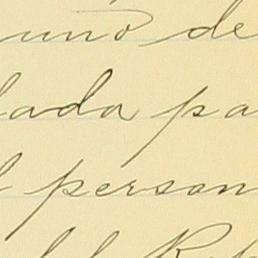 uno de
lada pa
l person
l Rep